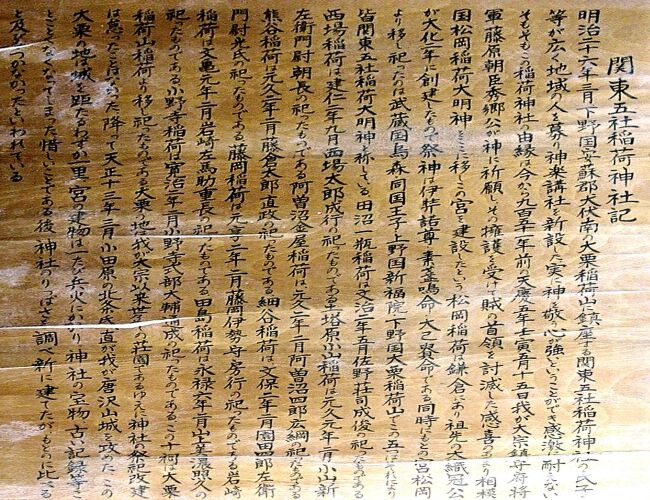 関東五社稲荷神社記
明治二十六年三月下野国安蘇郡大伏南大栗稲荷山鎮座する関東五社稲荷神社の氏子
等が広く地域の人を募り神楽講社を新設した実に神を敬う心が強いということができ感激に耐えない
そもそもこの稲荷神社の由緒は今から九百五十一年前の天慶五年壬寅五月十五日我が大宗鎮守府将
軍藤原朝臣秀郷公が神に祈願しその擁護を受けて賊の首領を討滅した感喜のあまり相模
国松岡稲荷大明神をここに移しての宮を建設したという松岡稲荷は鎌倉にあり祖先の大織冠公
が大化二年に創建したもので祭神は伊弉諾尊素盞鳴命大己貴命である同時にもとの宮松岡
より移し祀ったのは武蔵国烏森同国王子上野国新福院下野国大栗稲荷山でこの五つはそれにより
皆関東五社稲荷大明神を称している田沼一瓶稲荷は文治二年五月佐野荘司成俊の祀ったものである
西場稲荷は建仁二年九月西場太郎成行の祀ったものである塔原小山稲荷は元久元年二月小山新
左衛門尉朝長の祀ったものである阿曽沼金屋稲荷は元久二年二月阿曽沼四郎広綱の祀ったものである
熊谷稲荷は元久二年二月藤倉太郎直政の祀ったものである細谷稲荷は文保二年二月園田四郎左衛
門尉光氏の祀ったものである藤岡稲荷は元亨二年二月藤岡伊勢守房行の祀ったものである岩崎
稲荷は文亀元年二月岩崎左馬助重長の祀ったものである田島稲荷は永禄六年二月山上美濃照久の
祀ったものである小野寺稲荷は寛治二年二月小野寺式部大輔道成の祀ったものであるこの十祠は大栗
稲荷山稲荷より移し祀ったものである大栗の地は我が大宗以来世々の荘園であるゆえに神社の祭祀改建
は怠ったことはなかった降て天正十三年二月小田原の北条氏直が我が唐沢山城を攻めたこの
大栗の地は城を距たるわずか一里宮の建物は一たび兵火にかかり神社の宝物古い記録等こ
とごとくなくなってしまった惜しいことである後神社のりっぱさを調べ新に建てたがもとに比べる
と及びがつかなかったといわれている